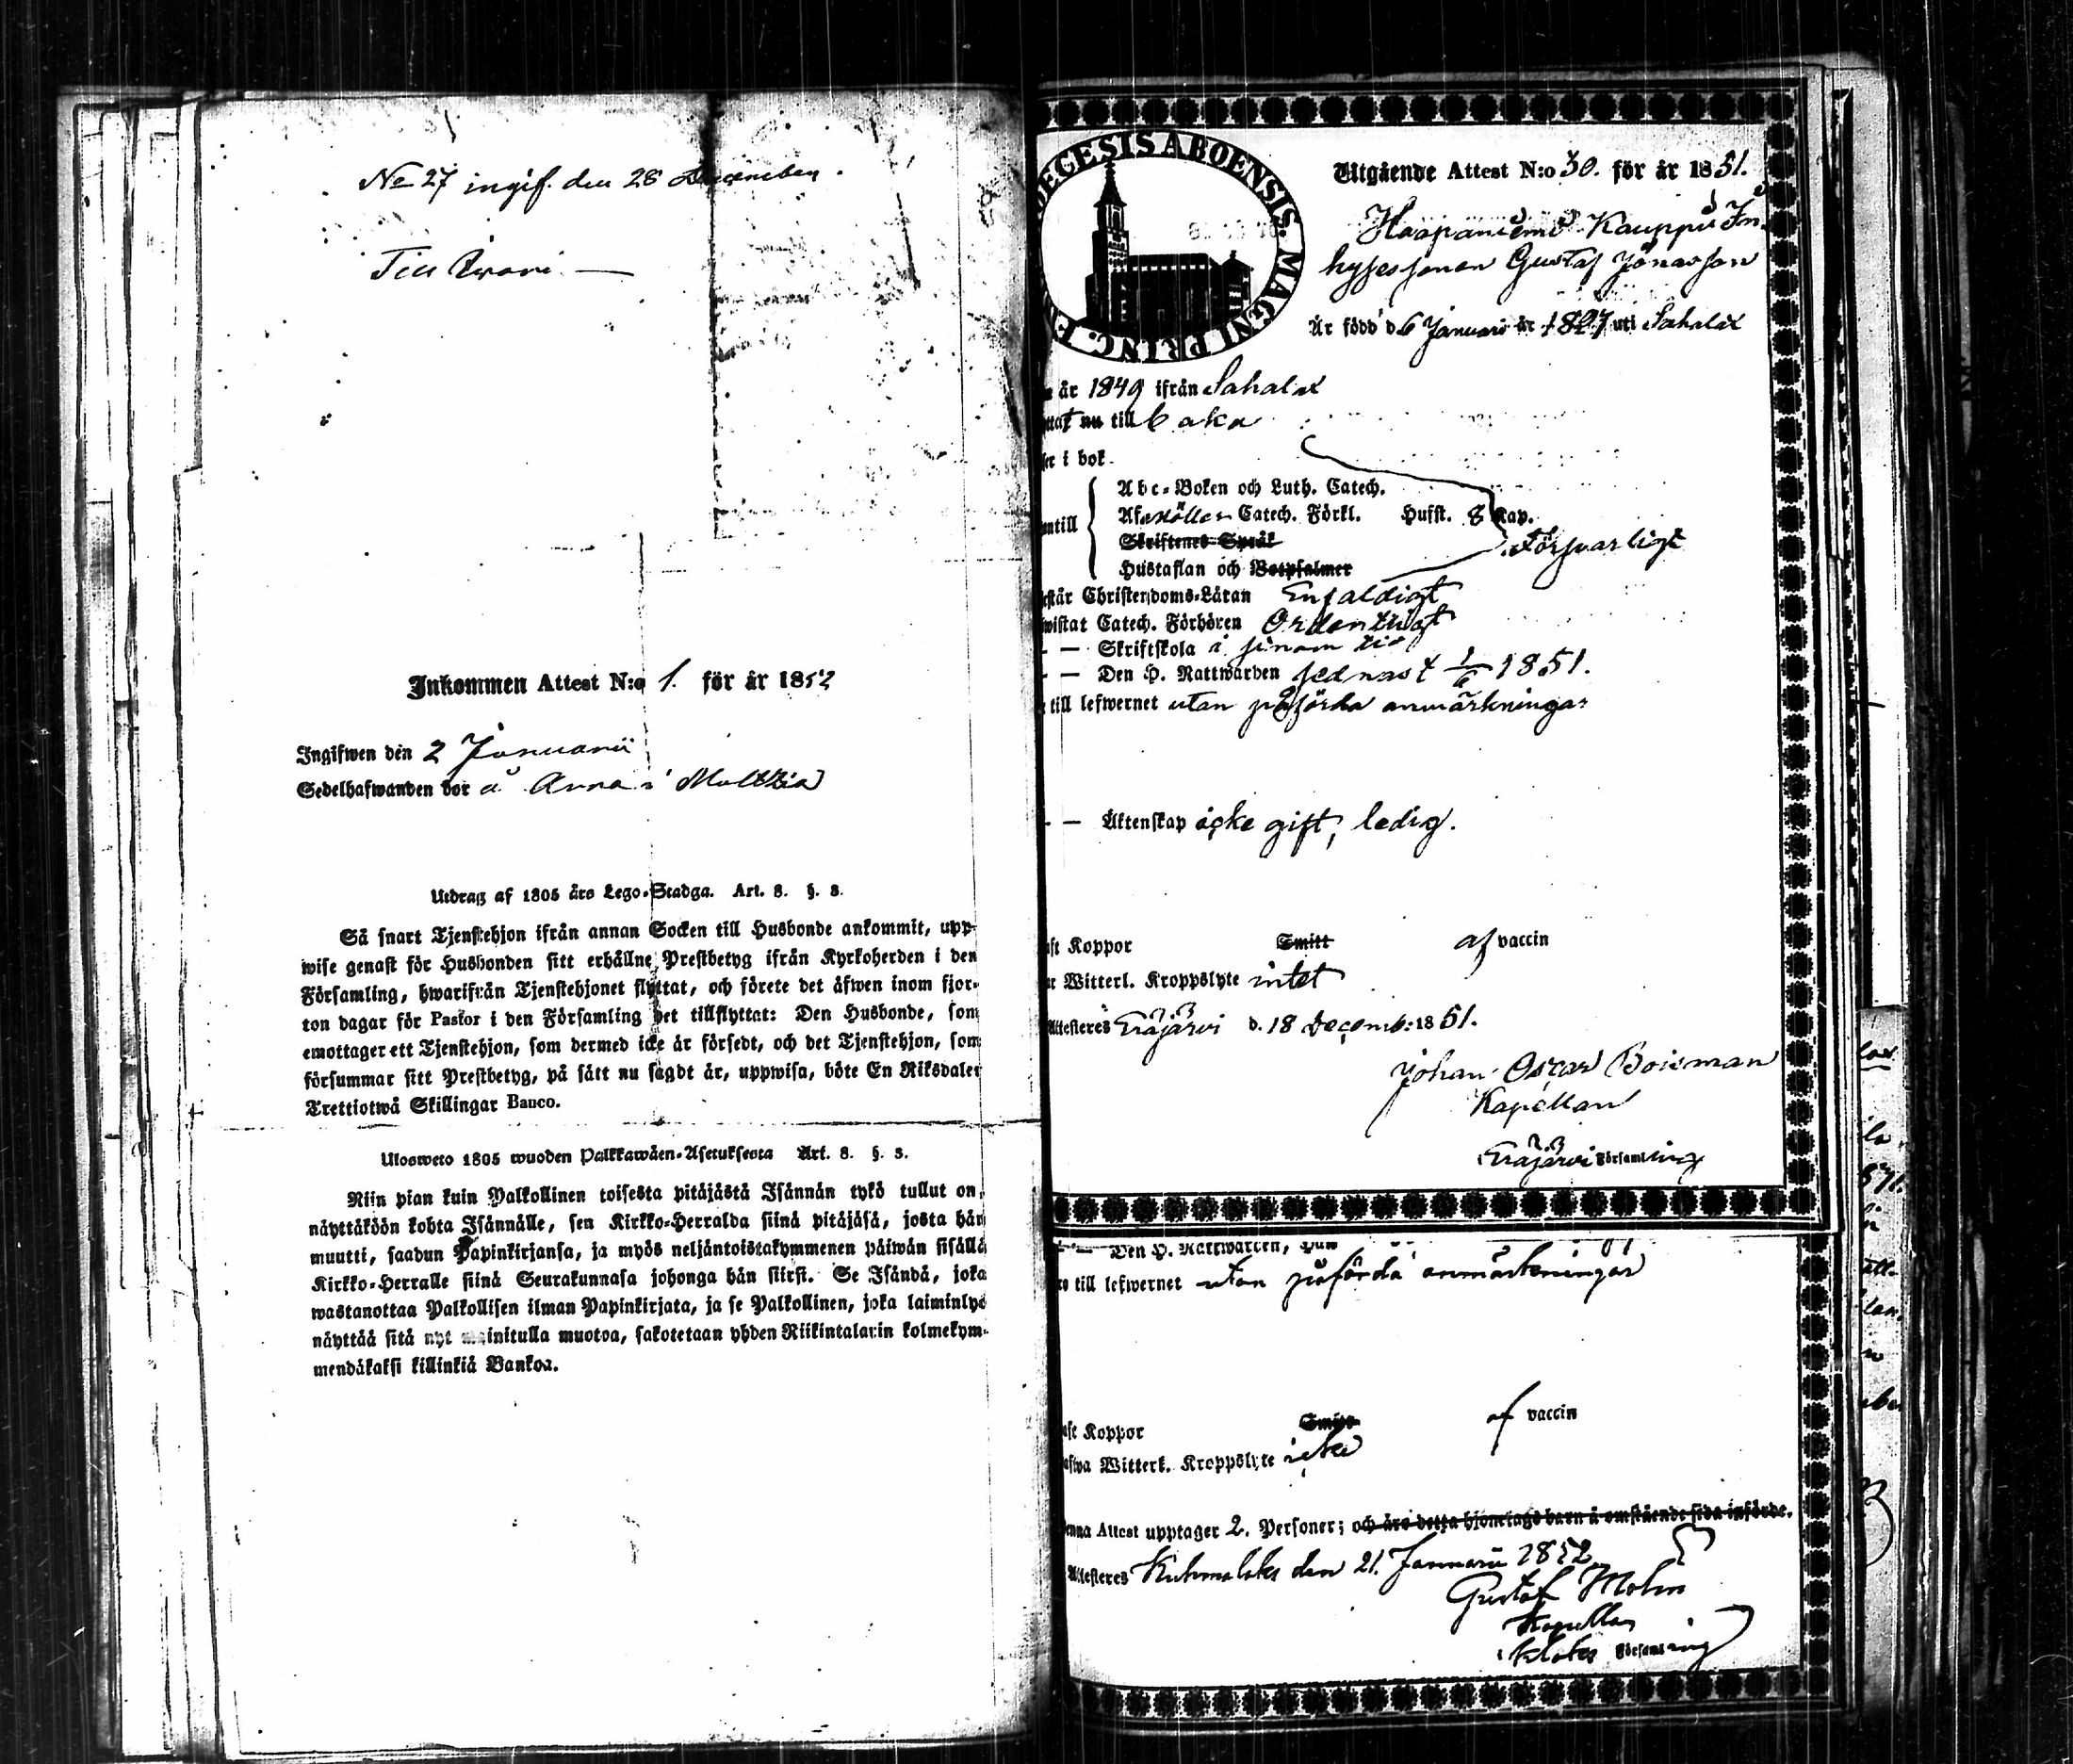 No 27 ingif. den 28 December.
Till
Inkommen Attest N:o 1. för år 1852
Ingifwen den 2 Januarii
Sedelhafwanden bor å Anna i Moltzia
Utdrag af 1805 års Lego-Stadga. Art. 8. §. 3.
Så snart Tjenstehjon ifrån annan Socken till Husbonde ankommit, upp-
wise genast för Husbonden sitt erhållne Prestbetyg ifrån Kyrkoherden i den
Församling, hwarifrån Tjenstehjonet flyttat, och förete det äfwen inom fjor-
ton dagar för Pastor i den Församling det tillflyttat: Den Husbonde, som
emottager ett Tjenstehjon, som dermed icke är försedt, och det Tjenstehjon, som
försummar sitt Prestbetyg, på sätt nu sagdt är, uppwisa, böte En Riksdaler
Trettiotwå Skillingar Banco.
Ulosweto 1805 wuoden Palkkawäen-Asetuksesta Art. 8. §. 3.
Niin pian kuin Palkollinen toisesta pitäjästä Isännän tykö tullut on,
näyttäköön kohta Isännälle, sen Kirkko-Herralda siinä pitäjäsä, josta hän
muutti, saadun Papinkirjansa, ja myös neljäntoistakymmenen päiwän sisällä
Kirkko-Herralle siinä Seurakunnasa johonga hän siirst. Se Isändä, joka
wastanottaa Palkollisen ilman Papinkirjata, ja se Palkollinen, joka laiminlyö
näyttää sitä nyt mainitulla muotoa, sakotetaan yhden Riikintalarin kolmekym-
mendäkaksi killinkiä Bankoa.
DECESIS ABOENSIS. MAGNI PRINC.
Utgående Attest N:o 30. för år 1851.
Haapaniemi Kauppi In
hysessonen Gustaf Jonasson
Är född d 6 Januari år 1827 uti Sahalax
år 1849 ifrån Sahalax
nu till baka
i bok
Abc-Boken och Luth. Catech.
Af Möller Catech. Förkl. Husst. 8 Kap.
Skriftenes Språk
Försvarligt
Hustaflan och Botpsalmer
Christendoms-Läran Enfaldigt
Catech. Förhören Ordentligt
— — Skriftskola i sinom tid
— — Den H. Nattwarden sednast 1/6 1851.
till lefwernet utan påförda anmärkningar
— — Äktenskap icke gift, ledig.
Koppor Smitt af vaccin
Witterl. Kroppslyte intet
Attesteres Eräjärvi d. 18 Decemb: 1851.
Johan Oscar Boisman
Kapellan
Eräjärvi Församling
— Den H. Nattwarden,
till lefwernet utan påförda anmärkningar
Koppor Smitt af vaccin
Witterl. Kroppslyte icke
Denna Attest upptager 2. Personer; och äro detta hjonelags barn å omstående sida införde.
Attesteres Kuhmalaks den 21. Januarii 1852
Gustaf Molin
Kapellan
Klaks Församling